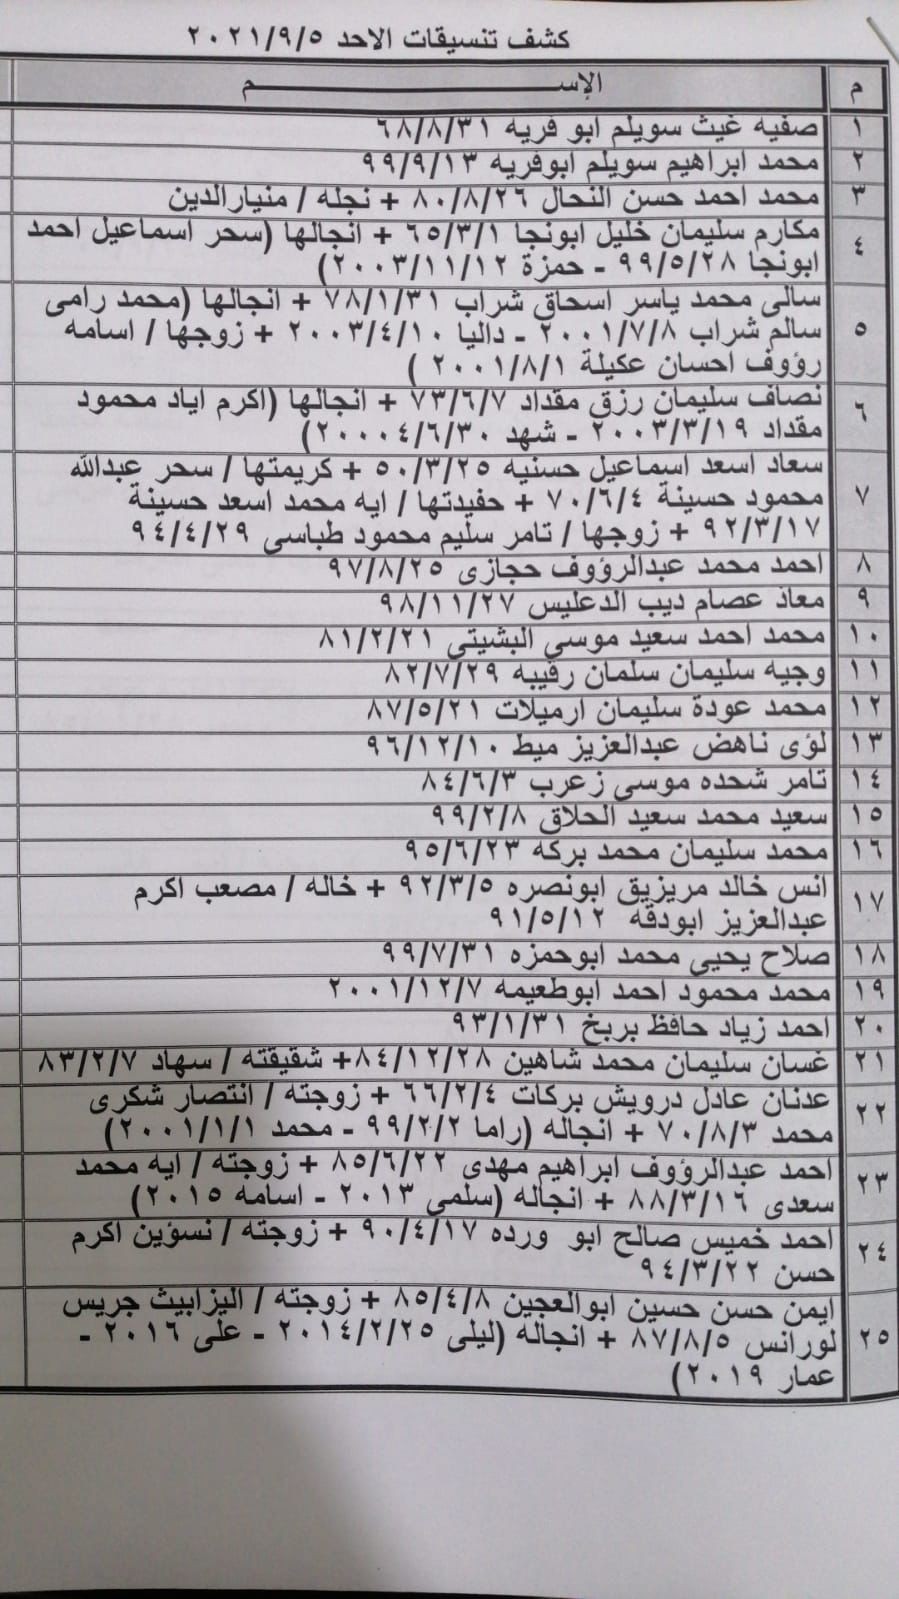 كشف تنسيقات الاحد ٢٠٢١/٩/٥
م الإســــــــــــــم
١ صفيه غيث سويلم ابو فريه ٦٨/٨/٣١
٢ محمد ابراهيم سويلم ابوفريه ٩٩/٩/١٣
٣ محمد احمد حسن النحال ٨٠/٨/٢٦ + نجله / منيارالدين
٤ مكارم سليمان خليل ابونجا ٦٥/٣/١ + انجالها (سحر اسماعيل احمد
ابونجا ٩٩/٥/٢٨ - حمزة ٢٠٠٣/١١/١٢)
٥ سالى محمد ياسر اسحاق شراب ٧٨/١/٣١ + انجالها (محمد رامى
سالم شراب ٢٠٠١/٧/٨ - داليا ٢٠٠٣/٤/١٠ + زوجها / اسامه
رؤوف احسان عكيلة ٢٠٠١/٨/١ )
٦ نصاف سليمان رزق مقداد ٧٣/٦/٧ + انجالها (اكرم اياد محمود
مقداد ٢٠٠٣/٣/١٩ - شهد ٢٠٠٠٤/٦/٣٠)
٧ سعاد اسعد اسماعيل حسنيه ٥٠/٣/٢٥ + كريمتها / سحر عبدالله
محمود حسينة ٧٠/٦/٤ + حفيدتها / ايه محمد اسعد حسينة
٩٢/٣/١٧ + زوجها / تامر سليم محمود طباسى ٩٤/٤/٢٩
٨ احمد محمد عبدالرؤوف حجازى ٩٧/٨/٢٥
٩ معاذ عصام ديب الدعليس ٩٨/١١/٢٧
١٠ محمد احمد سعيد موسي البشيتي ٨١/٢/٢١
١١ وجيه سليمان سلمان رقيبه ٨٢/٧/٢٩
١٢ محمد عودة سليمان ارميلات ٨٧/٥/٢١
١٣ لؤى ناهض عبدالعزيز ميط ٩٦/١٢/١٠
١٤ تامر شحده موسى زعرب ٨٤/٦/٣
١٥ سعيد محمد سعيد الحلاق ٩٩/٢/٨
١٦ محمد سليمان محمد بركه ٩٥/٦/٢٣
١٧ انس خالد مريزيق ابونصره ٩٢/٣/٥ + خاله / مصعب اكرم
عبدالعزيز ابودقه ٩١/٥/١٢
١٨ صلاح يحيى محمد ابوحمزه ٩٩/٧/٣١
١٩ محمد محمود احمد ابوطعيمه ٢٠٠١/١٢/٧
٢٠ احمد زياد حافظ بربخ ٩٣/١/٣١
٢١ غسان سليمان محمد شاهين ٨٤/١٢/٢٨+ شقيقته / سهاد ٨٣/٢/٧
٢٢ عدنان عادل درويش بركات ٦٦/٢/٤ + زوجته / انتصار شكرى
محمد ٧٠/٨/٣ + انجاله (راما ٩٩/٢/٢ - محمد ٢٠٠١/١/١)
٢٣ احمد عبدالرؤوف ابراهيم مهدى ٨٥/٦/٢٢ + زوجته / ايه محمد
سعدى ٨٨/٣/١٦ + انجاله (سلمى ٢٠١٣ - اسامه ٢٠١٥)
٢٤ احمد خميس صالح ابو ورده ٩٠/٤/١٧ + زوجته / نسؤين اكرم
حسن ٩٤/٣/٢٢
٢٥ ايمن حسن حسين ابوالعجين ٨٥/٤/٨ + زوجته / اليزابيث جريس
لورانس ٨٧/٨/٥ + انجاله (ليلى ٢٠١٤/٢/٢٥ - على ٢٠١٦ -
عمار ٢٠١٩)